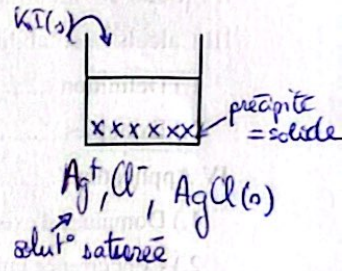 KI(s)
précipité
= solide
Ag⁺, Cl⁻, AgCl(s)
solut° saturée